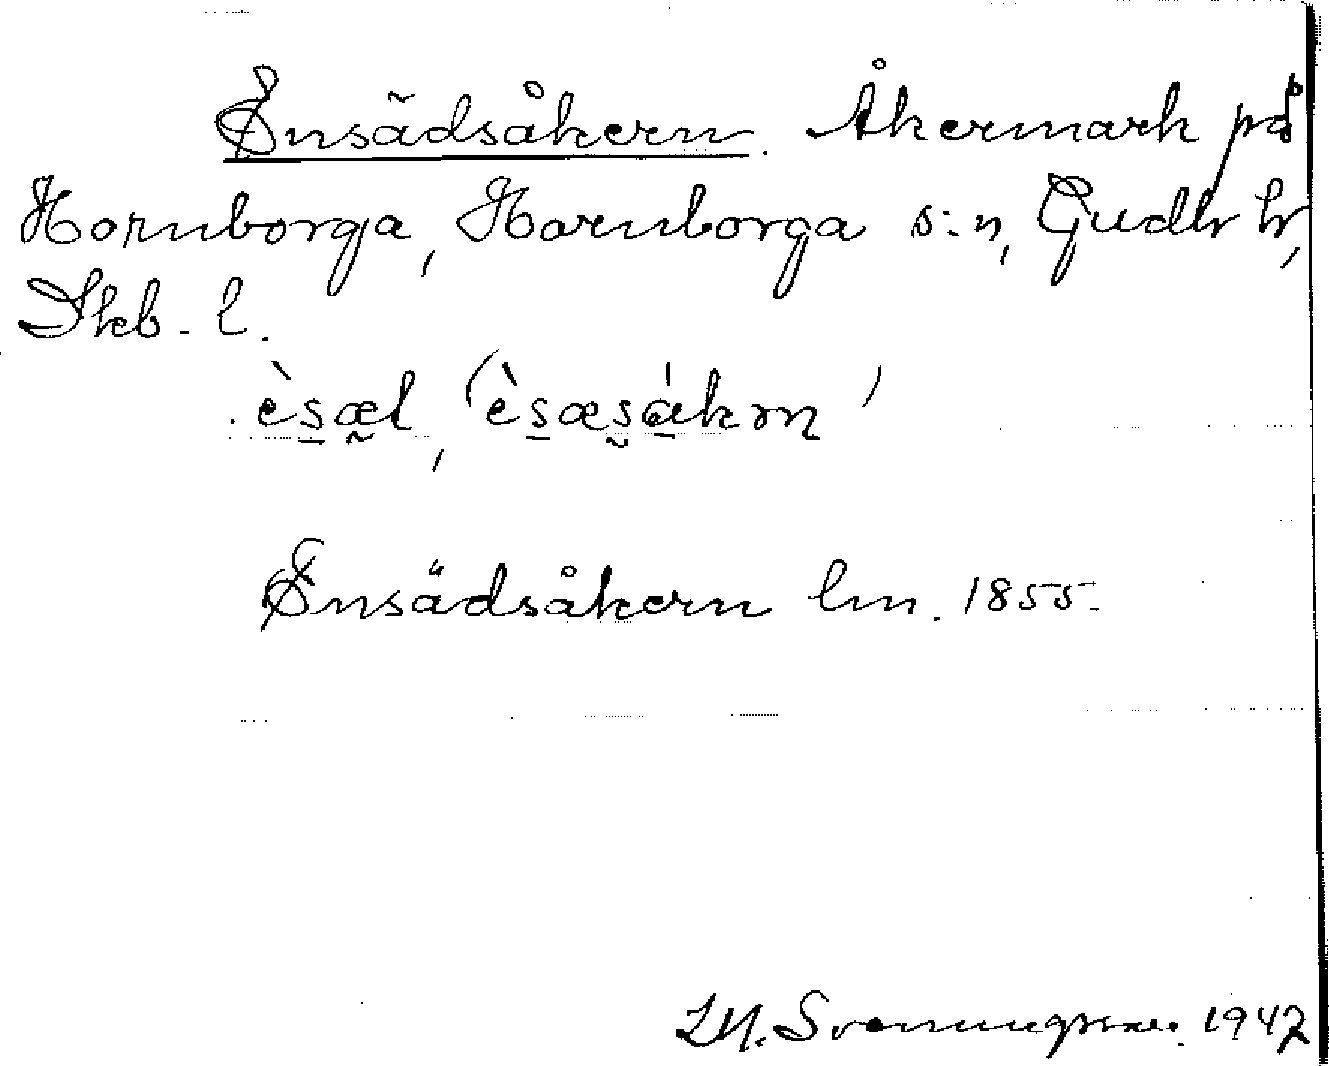 Ensädsåkern. Åkermark på
Hornborga, Hornborga s:n, Gudh hr,
Skb. l.
èsæl, (èsæsákrn)
Ensädsåkern lm. 1855.
Svenningsson. 1947